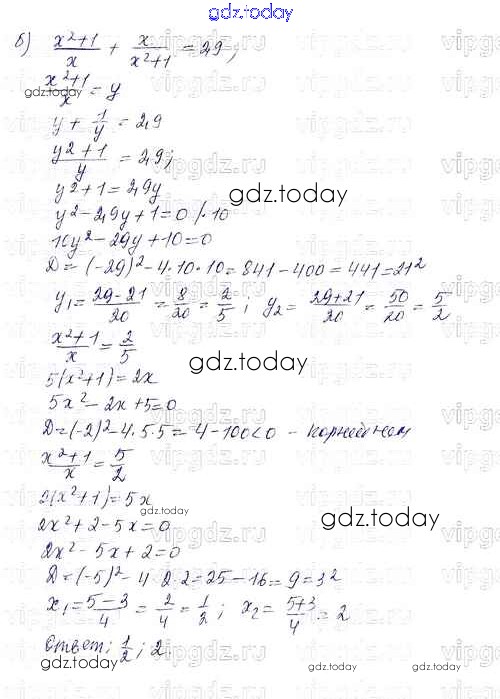 gdz.today
б) (x²+1)/x + x/(x²+1) = 2,9;
(x²+1)/x = y
gdz.today
y + 1/y = 2,9
(y²+1)/y = 2,9;
y²+1 = 2,9y
gdz.today
y² - 2,9y + 1 = 0 /·10
10y² - 29y + 10 = 0
D = (-29)² - 4·10·10 = 841 - 400 = 441 = 21²
y₁ = (29-21)/20 = 8/20 = 2/5; y₂ = (29+21)/20 = 50/20 = 5/2
(x²+1)/x = 2/5
gdz.today
5(x²+1) = 2x
5x² - 2x + 5 = 0
D = (-2)² - 4·5·5 = 4 - 100 < 0 - корней нет
(x²+1)/x = 5/2
2(x²+1) = 5x
gdz.today
2x² + 2 - 5x = 0
gdz.today
2x² - 5x + 2 = 0
D = (-5)² - 4·2·2 = 25 - 16 = 9 = 3²
x₁ = (5-3)/4 = 2/4 = 1/2; x₂ = (5+3)/4 = 2
Ответ: 1/2; 2.
gdz.today gdz.today gdz.today
vipgdz.ru